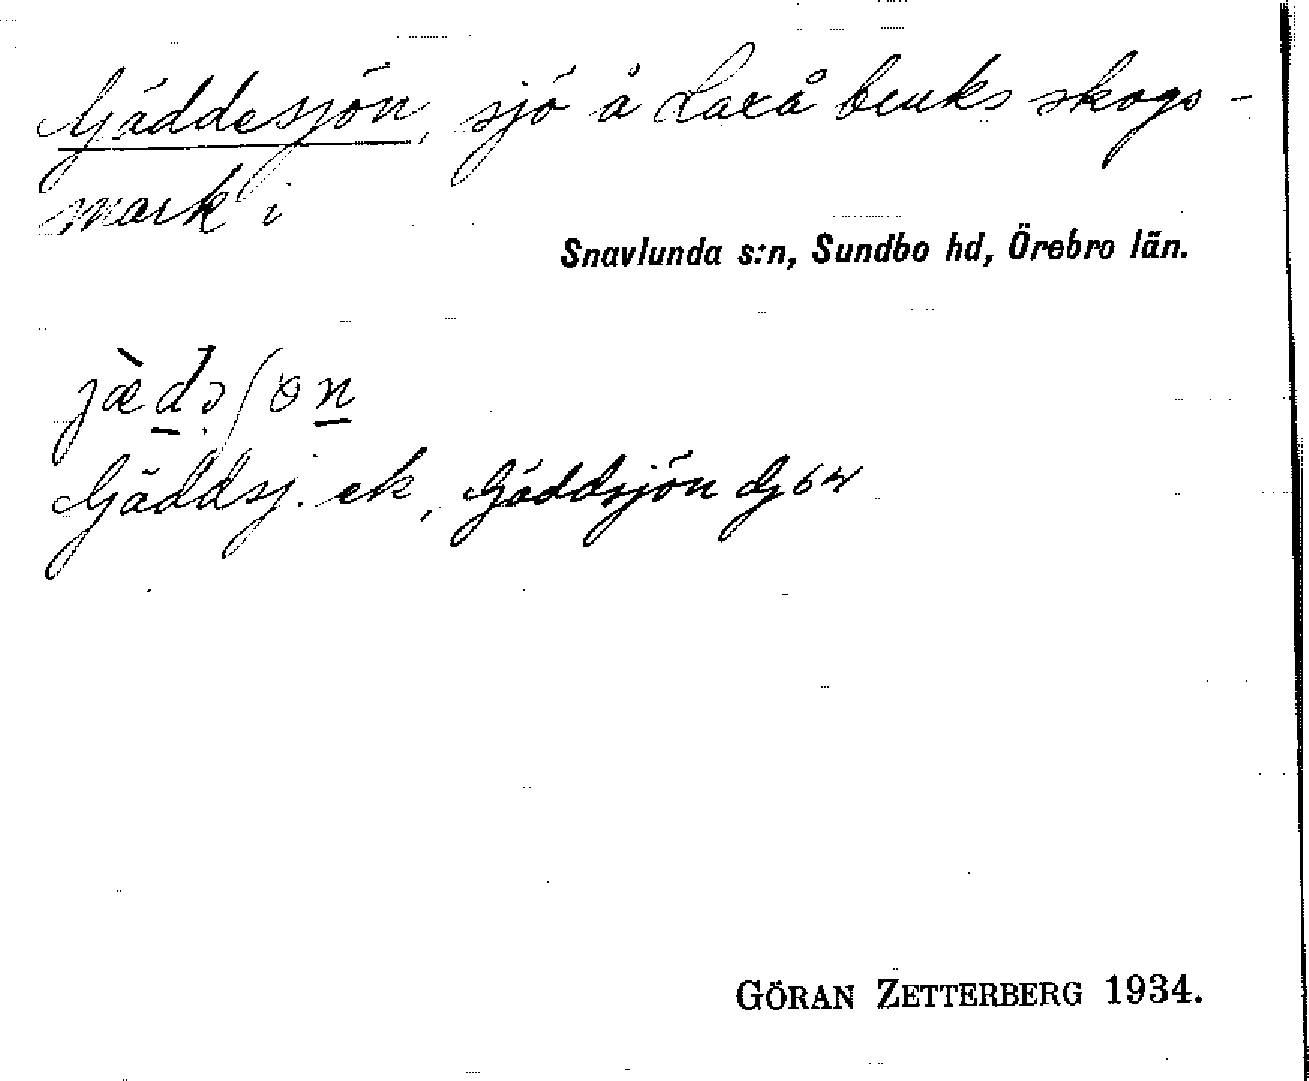 Gäddesjön, sjö å Laxå bruks skogs-
mark i
Snavlunda s:n, Sundbo hd, Örebro län.
jæ̀dəʃɵn
Gäddsj. ek, Gäddsjön Gj 64
GÖRAN ZETTERBERG 1934.